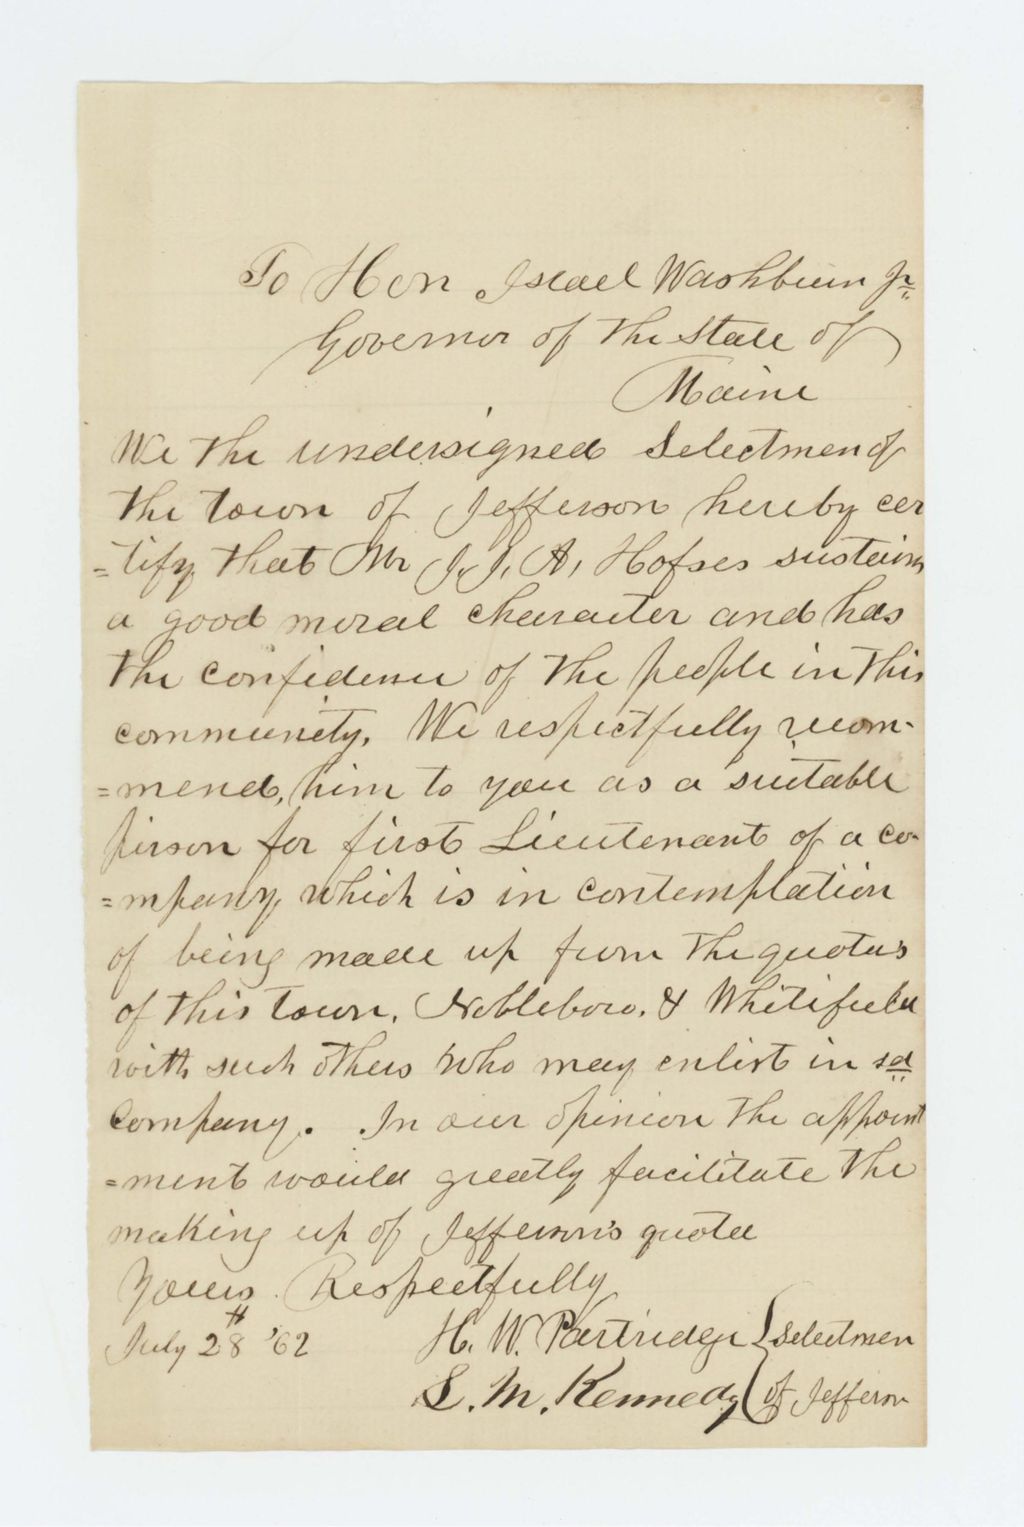 To Hon Israel Washburn Jr
Governor of the State of
Maine
We the undersigned Selectmen of
the town of Jefferson hereby cer
=tify that Mr J. J. A. Hofses sustains
a good moral character and has
the confidence of the people in this
community. We respectfully recom-
=mend, him to you as a suitable
person for first Lieutenant of a co-
=mpany which is in contemplation
of being made up from the quotas
of this town, Nobleboro, & Whitefield
with such others who may enlist in sd
company. In our opinion the appoint
=ment would greatly facilitate the
making up of Jefferson's quota
Yours Respectfully
July 28th '62 H. W. Partridge } Selectmen
S. M. Kennedy } of Jefferson